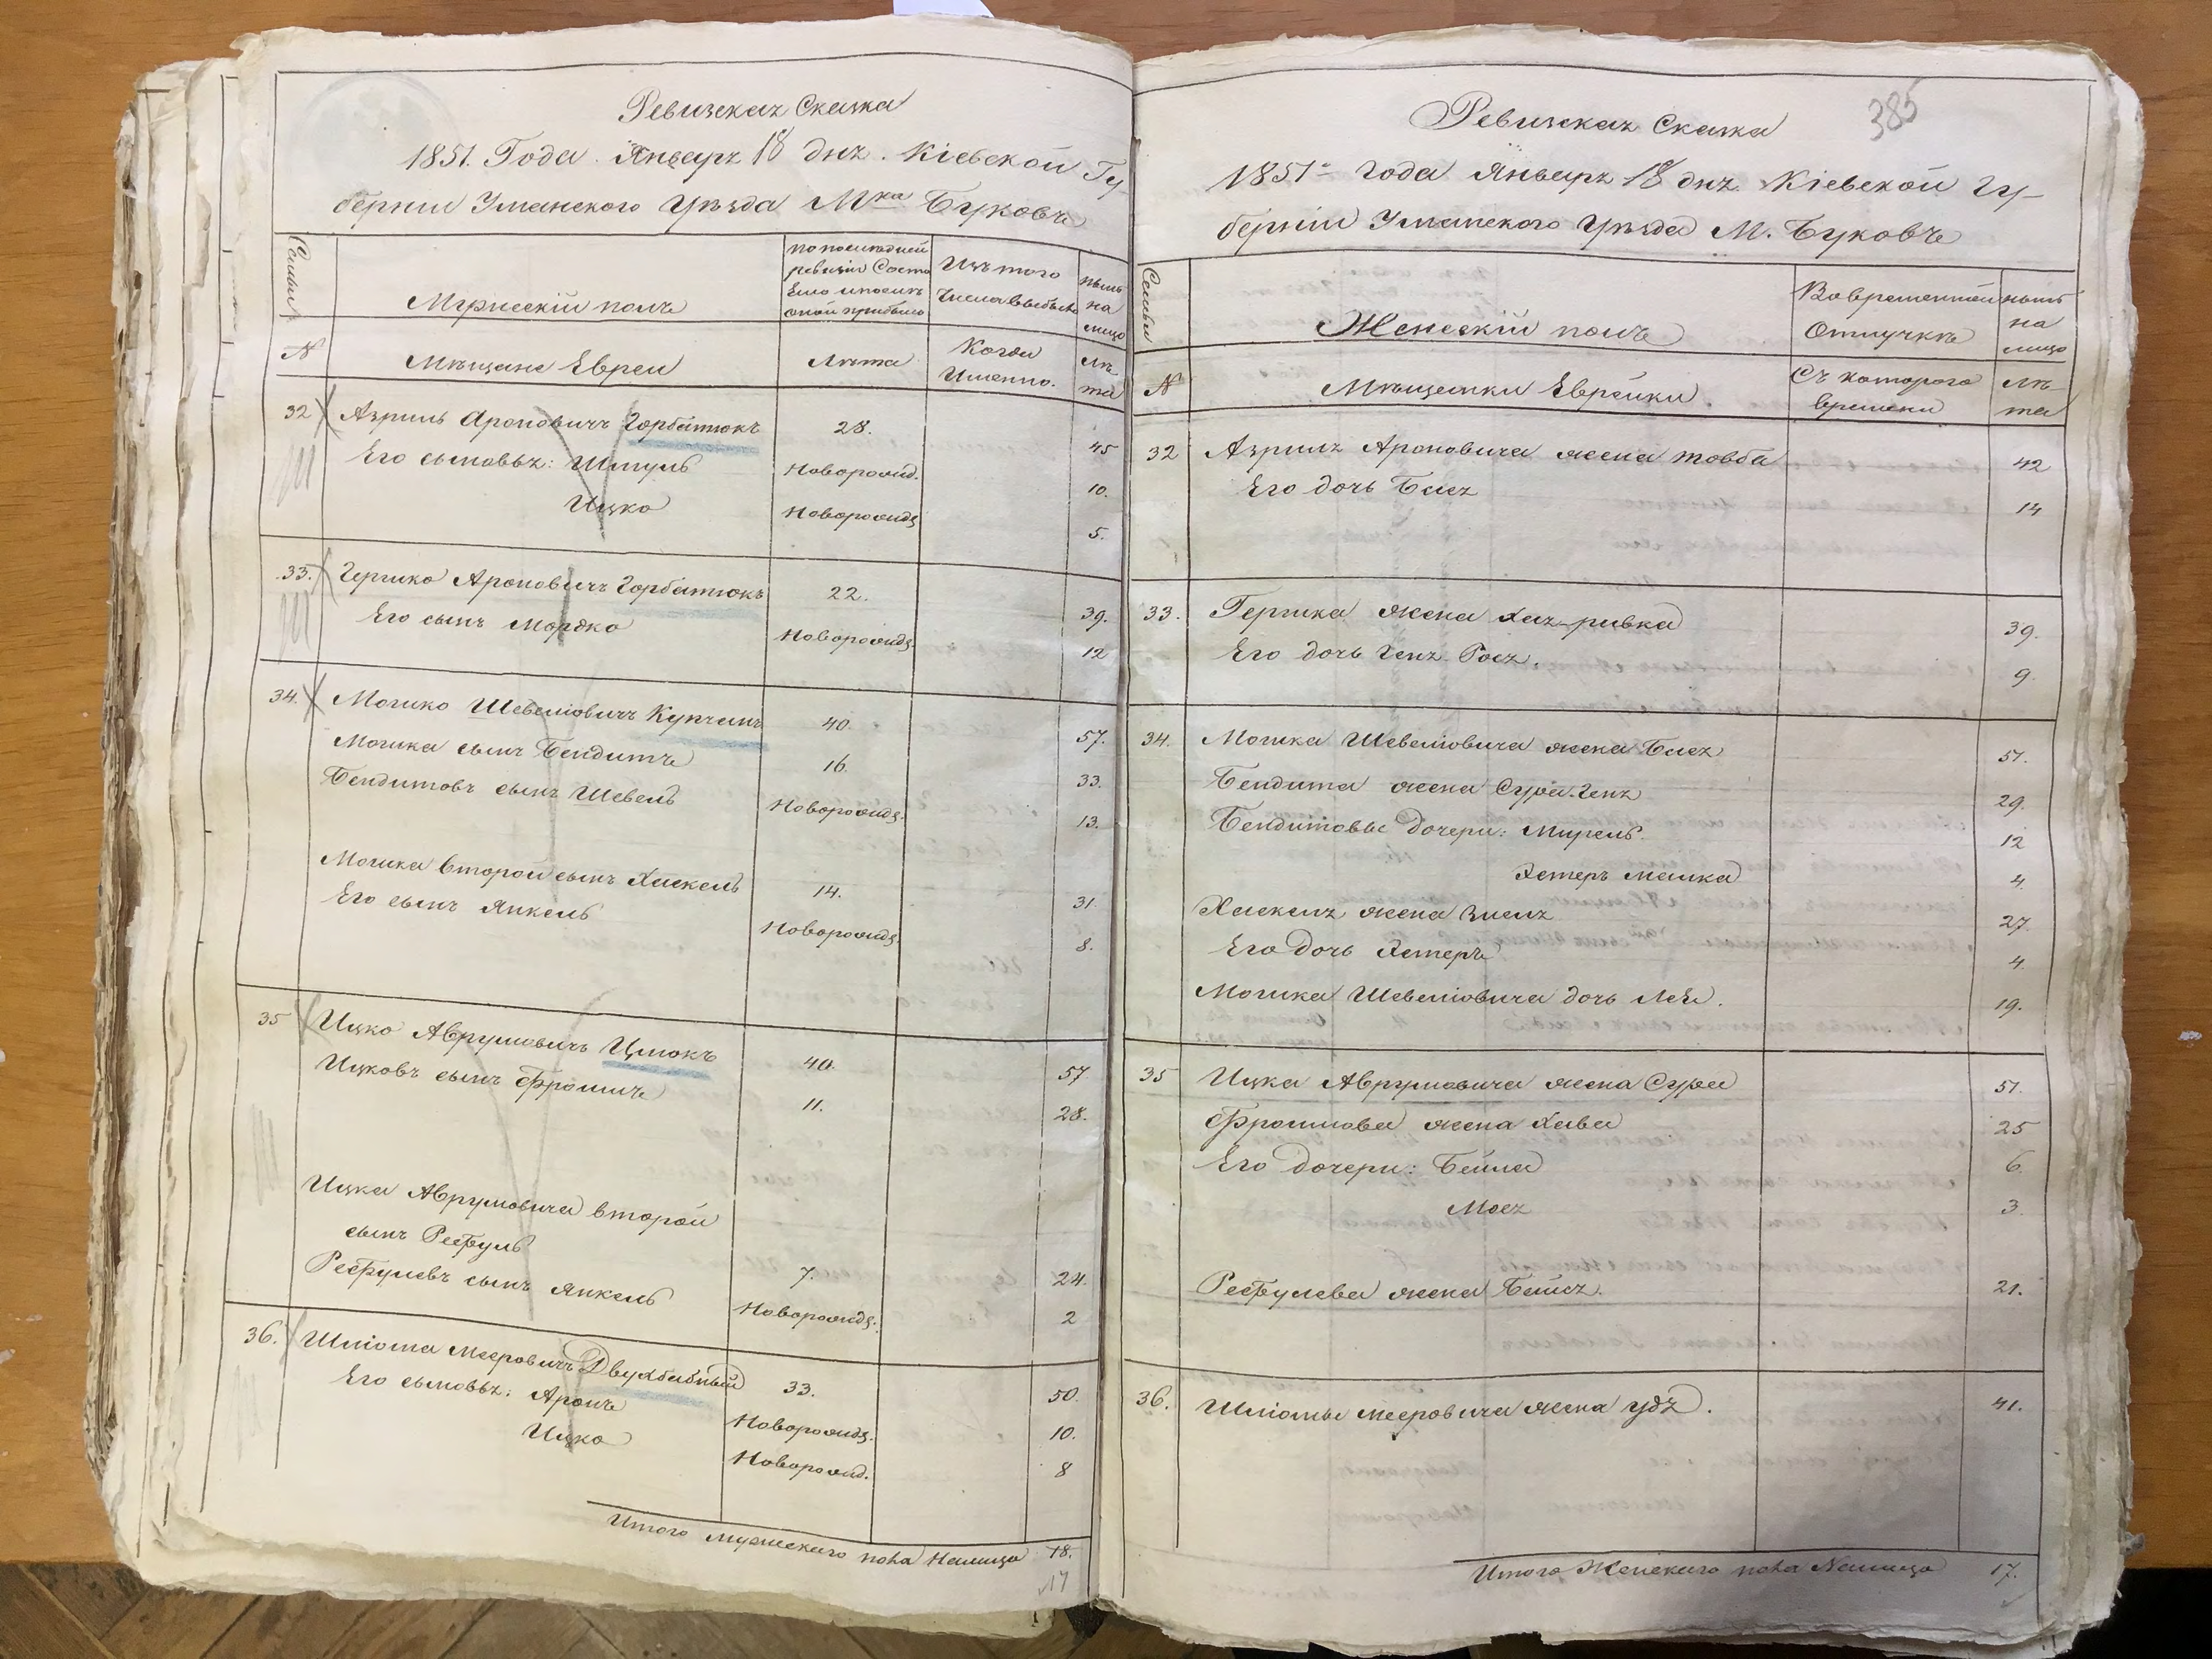 Ревизская Сказка
1851. Года. Январъ 18 днъ. Кіевской Гу
берніи Уманского Уѣзда Мка Буковъ
Семьи
Мужескій полъ
по последней ревизіи Состо
яло и после оной прибыло
Изъ того Числа выбыло
нынѣ на лицо
№
Мѣщане Евреи
Лѣта
Когда Именно.
Лѣ-
та
32 Азриль Ароновичъ Горбатюкъ 28. 45
Его сыновья: Шмуль Новорожд. 10.
Ицко Новорожд. 5.
33. Гершко Ароновичъ Горбатюкъ 22. 39.
Его сынъ Мордко Новорожд. 12
34. Мошко Шевелювичъ Купчикъ 40. 57.
Мошка сынъ Бендитъ 16. 33.
Бендитовъ сынъ Шевель Новорожд. 13.
Мошка второй сынъ Хаскель 14. 31.
Его сынъ Янкель Новорожд. 8.
35 Ицко Аврумовичъ Цмокъ 40. 57
Ицковъ сынъ Фроимъ 11. 28.
Ицка Аврумовича второй
сынъ Рефуль 7. 24.
Рефулевъ сынъ Янкель Новорожд. 2
36. Шліома Мееровичъ Двухбабный 33. 50.
Его сыновья: Аронъ Новорожд. 10.
Ицко Новорожд. 8
Итого мужескаго пола Налицо 18.
17
385
Ревизская Сказка
1851го года Январъ 18 днъ Кіевской Гу-
берніи Уманского Уѣзда М. Буковъ
Семьи
Женскій полъ
Во временной Отлучкѣ
нынѣ на лицо
№
Мѣщанки Еврейки.
Съ которого времени
Лѣ-
та
32 Азриля Ароновича жена Товба 42
Его дочь Бася 14
33. Гершка жена Хая-ривка 39.
Его дочь Геня-Рося. 9.
34. Мошка Шевелювича жена Бася 51.
Бендита жена Сура-Геня 29.
Бендитовы дочери: Мирель 12
Эстеръ Малка 4.
Хаскеля жена Зися 27.
Его дочь Эстеръ 4.
Мошка Шевелювича дочь Лея. 19.
35 Ицка Аврумовича жена Сура 51.
Фроимова жена Хава 25
Его дочери: Бейла 6.
Мося 3.
Рефулева жена Бася. 21.
36. Шліомы Мееровича жена Удя. 41.
Итого Женскаго пола Налицо 17.